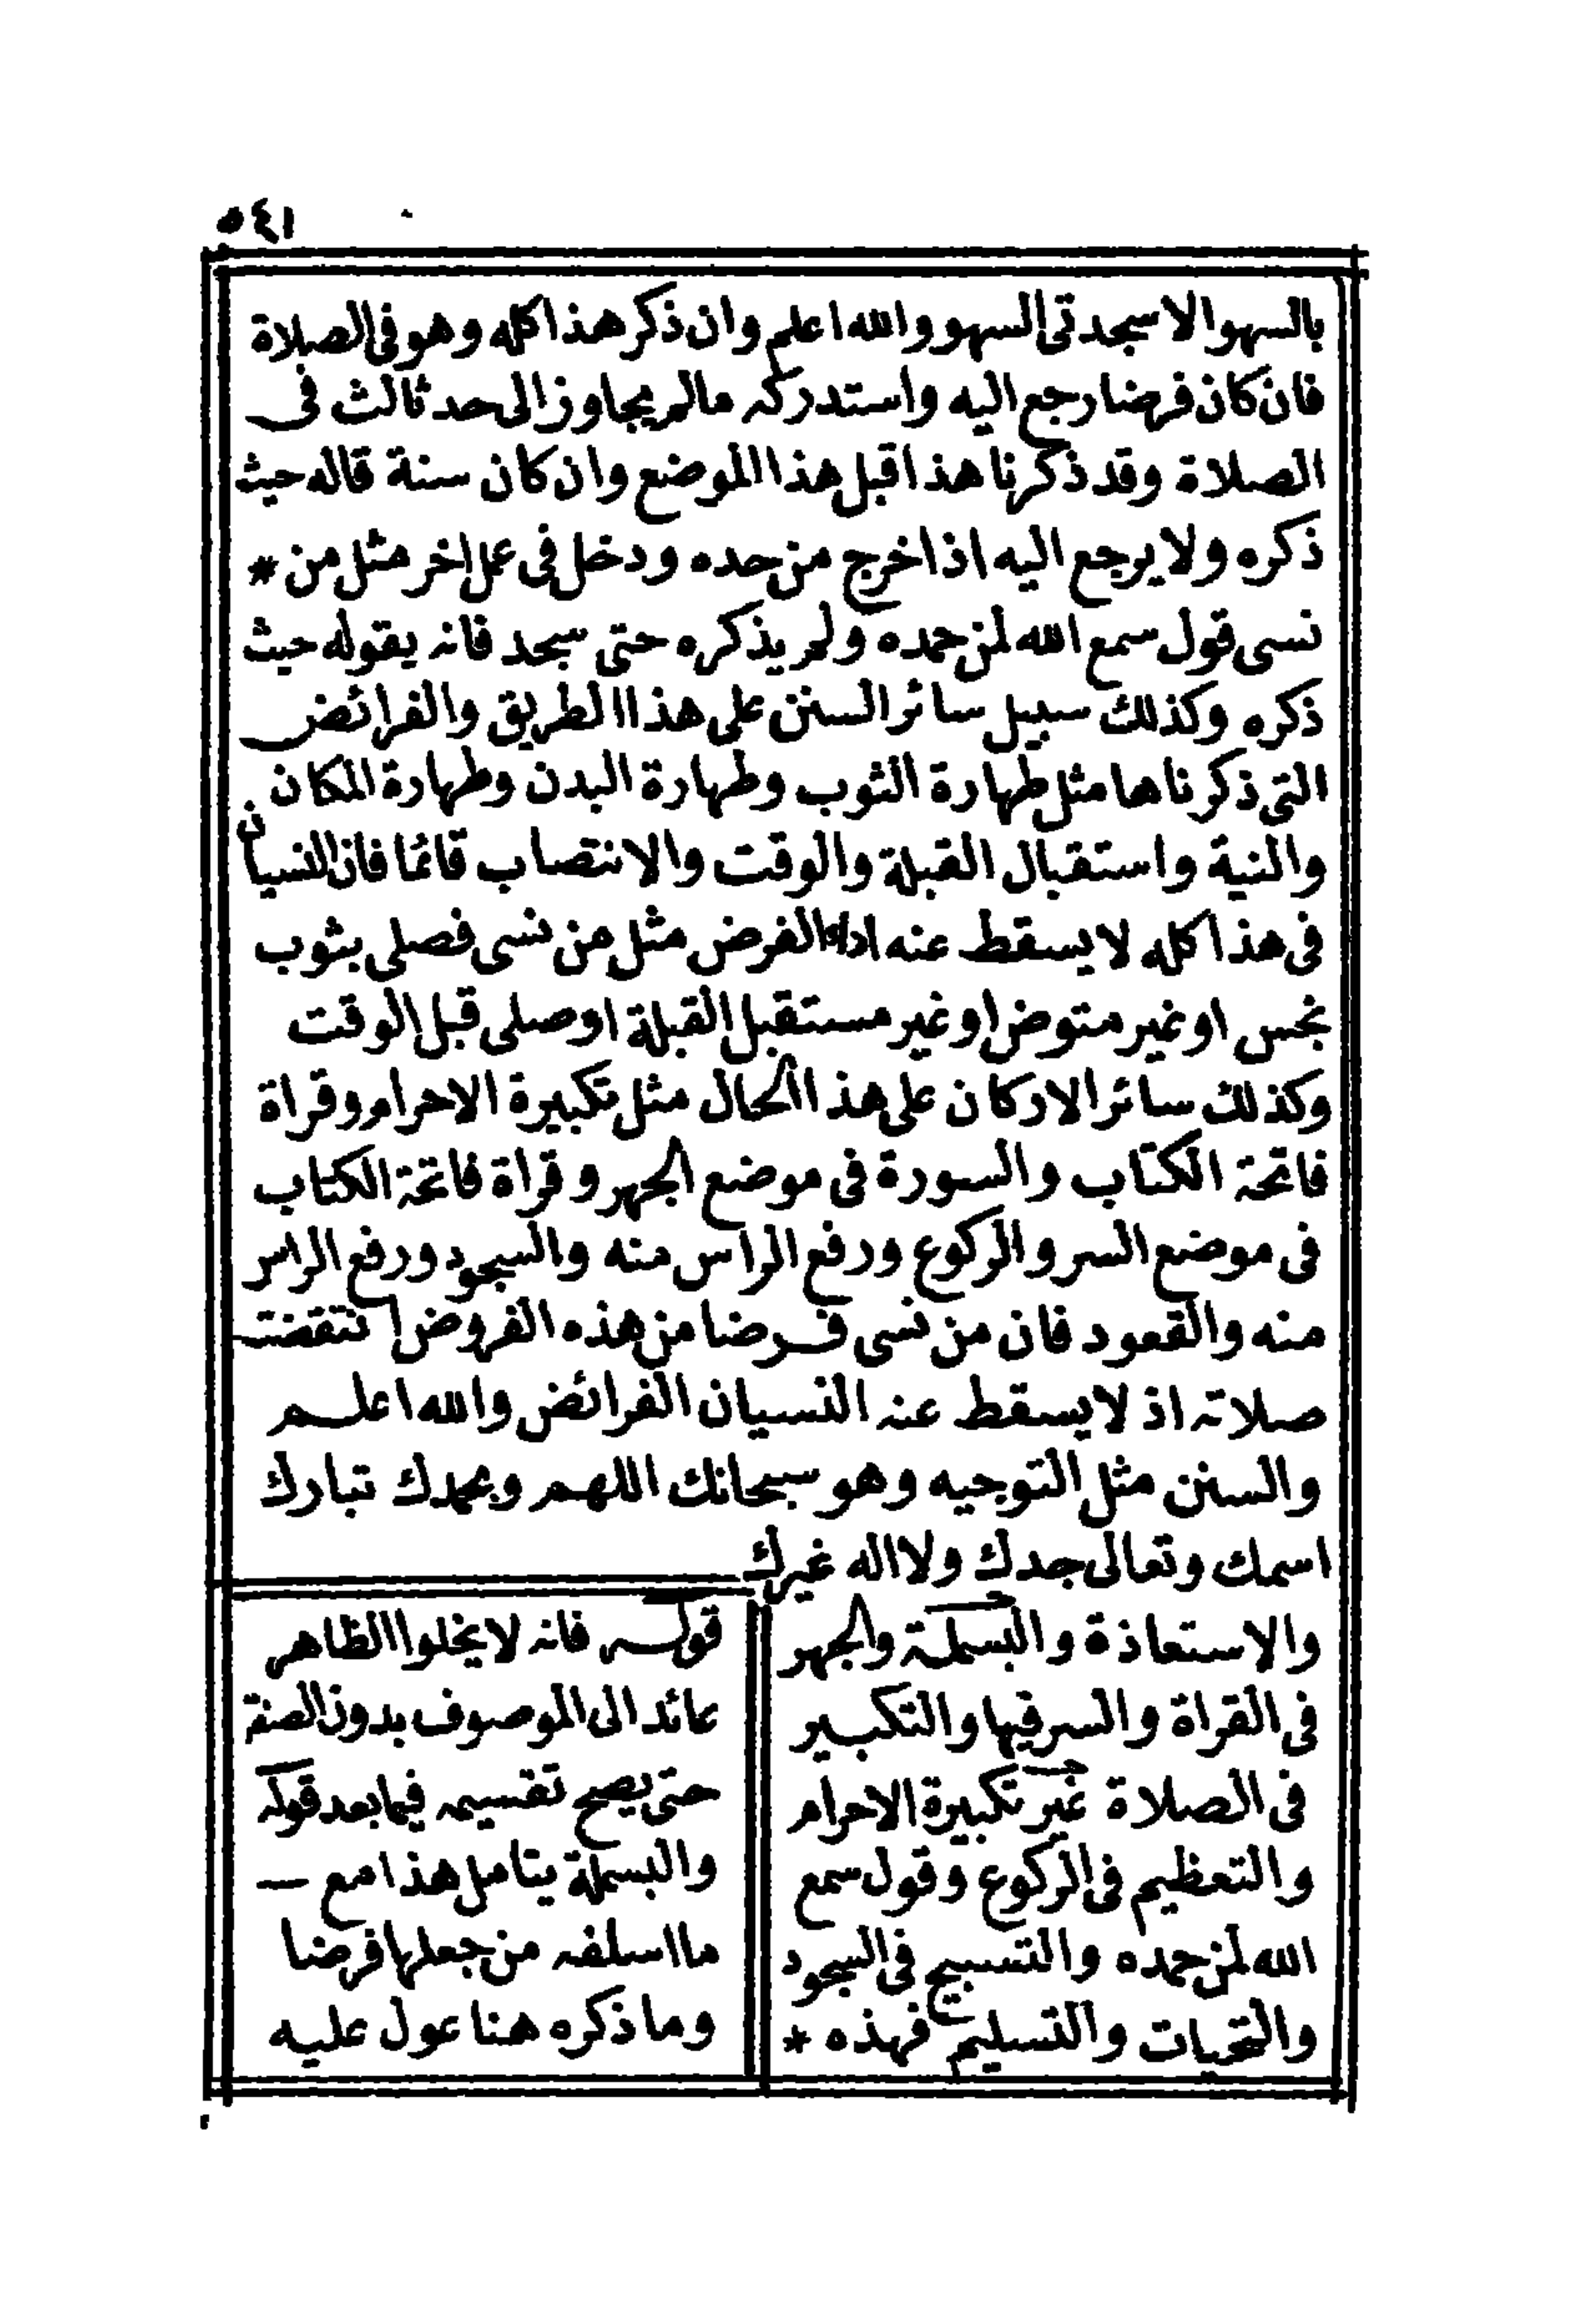 ٥٤١
بالسهو الا سجدتى السهو والله اعلم وان ذكر هذا كله وهو فى الصلاة
فان كان فرضا رجع اليه واستدركه مالم يجاوز الى حد ثالث فى
الصلاة وقد ذكرنا هذا قبل هذا الموضع وان كان سنة قاله حيث
ذكره ولا يرجع اليه اذا خرج من حده ودخل فى عمل اخر مثل من *
نسى قول سمع الله لمن حمده ولم يذكره حتى سجد فانه يقوله حيث
ذكره وكذلك سبيل سائر السنن على هذا الطريق والفرائض
التى ذكرناها مثل طهارة الثوب وطهارة البدن وطهارة المكان
والنية واستقبال القبلة والوقت والانتصاب قائما فان النسيان
فى هذا كله لا يسقط عنه اداء الفرض مثل من نسى فصلى بثوب
نجس او غير متوض او غير مستقبل القبلة او صلى قبل الوقت
وكذلك سائر الاركان على هذا الحال مثل تكبيرة الاحرام وقراة
فاتحة الكتاب والسورة فى موضع الجهر وقراة فاتحة الكتاب
فى موضع السر والركوع ورفع الراس منه والسجود ورفع الراس
منه والقعود فان من نسى فرضا من هذه الفروض انتقضت
صلاته اذ لا يسقط عنه النسيان الفرائض والله اعلم
والسنن مثل التوجيه وهو سبحانك اللهم وبحمدك تبارك
اسمك وتعالى جدك ولا اله غيرك
والاستعاذة والبسملة والجهر
فى القراة والسر فيها والتكبير
فى الصلاة غير تكبيرة الاحرام
والتعظيم فى الركوع وقول سمع
الله لمن حمده والتسبيح فى السجود
والتحيات والتسليم فهذه *
قوله فانه لا يخلوا الظاهر
عائد الى الموصوف بدون الصفة
حتى يصح تقسيمه فيما بعد قوله
والبسملة يتامل هذا مع —
ما اسلفه من جعلها فرضا
وما ذكره هنا عول عليه